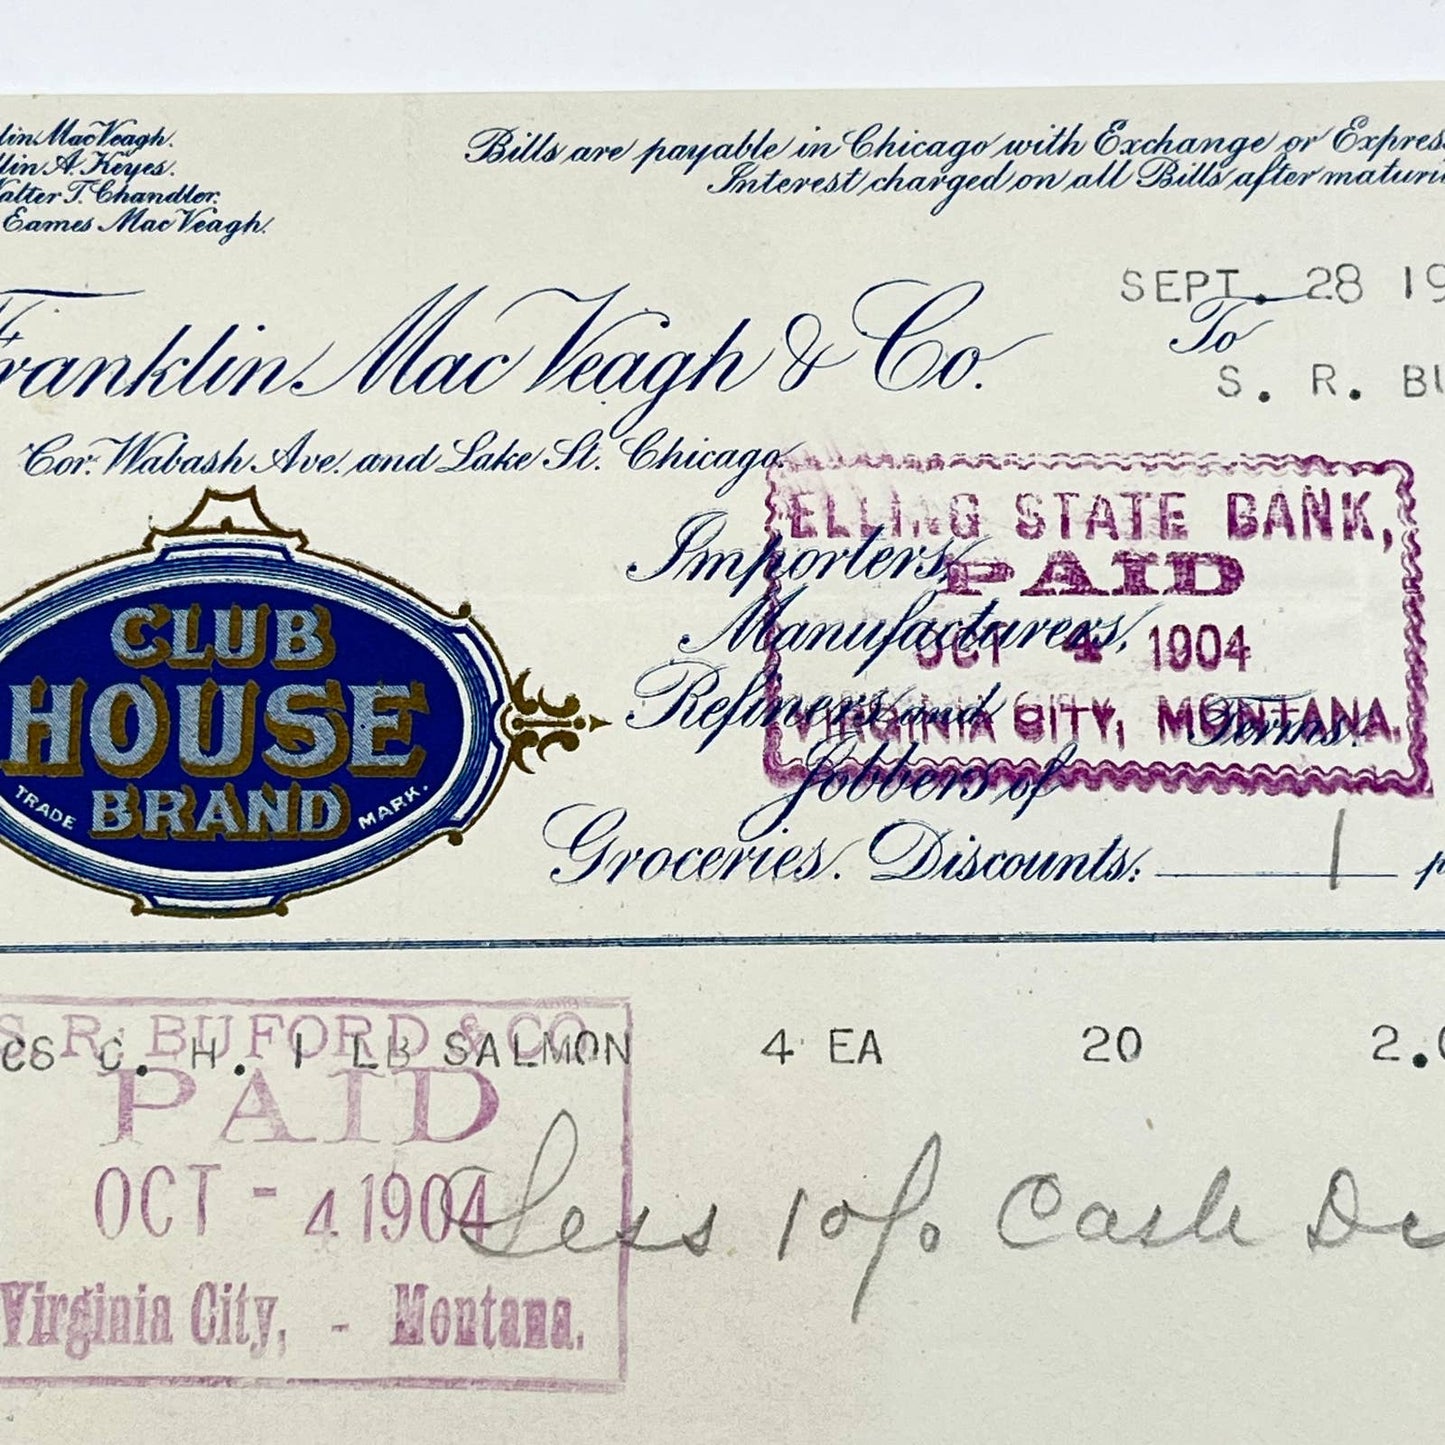 lin MacVeagh.
lin A. Keyes.
alter T. Chandler.
Eames MacVeagh.
Bills are payable in Chicago with Exchange or Expres
Interest charged on all Bills after maturi
SEPT. 28 19
To
Franklin MacVeagh & Co.
S. R. BU
Cor. Wabash Ave. and Lake St. Chicago.
CLUB
HOUSE
BRAND
TRADE MARK.
Importers,
Manufacturers,
Refiners and
Jobbers of
Groceries.
ELLING STATE BANK,
PAID
OCT 4 1904
VIRGINIA CITY, MONTANA.
Terms:
Discounts: 1 p
CS C. H. 1 LB SALMON 4 EA 20 2.0
S. R. BUFORD & CO.
PAID
OCT - 4 1904
Virginia City, - Montana.
Less 1 o/o Cash Di